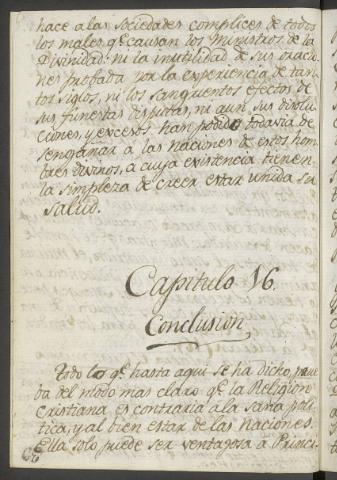 hace a las Sociedades complices de todos
los males qe. causan los Ministros de la
Divinidad: ni la inutilidad de sus oracio
nes probada por la experiencia de tan
tos siglos, ni los sangrientos efectos de
sus funestas disputas, ni aun sus disolu
ciones, y excesos han podido todavia de
sengañar a las naciones de estos hom
bres divinos, a cuya existencia tienen
la simpleza de creer estar unida su
salud.
Capitulo 16.
Conclusion
Todo lo qe. hasta aqui se ha dicho, prue
ba del modo mas claro qe. la Religion
Cristiana es contraria a la sana poli
tica, y al bien estar de las naciones.
Ella solo puede ser ventajosa a Princi